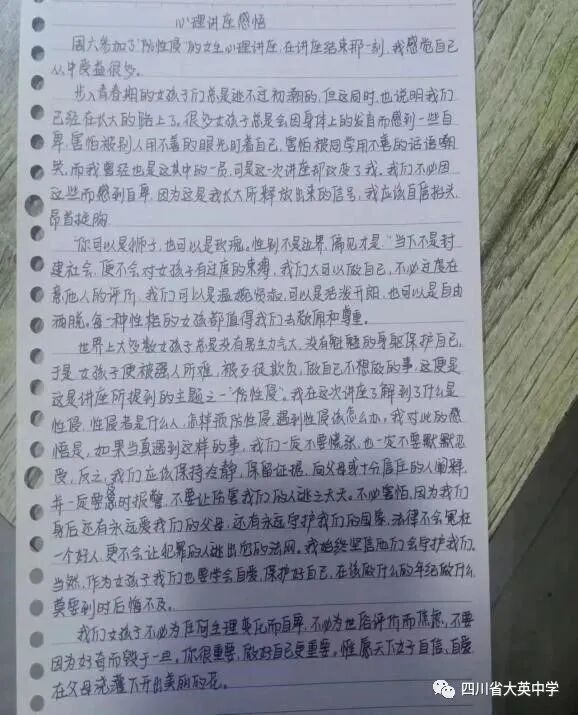 心理讲座感悟
周六参加了“防性侵”的女生心理讲座，在讲座结束那一刻，我感觉自己
从中受益很多。
步入青春期的女孩子们总是逃不过初潮的，但这同时，也说明我们
已经在长大的路上了。很多女孩子总是会因身体上的发育而感到一些自
卑，害怕被别人用不善的眼光盯着自己，害怕被同学用不善的话语嘲
笑，而我曾经也是这其中的一员，可是这一次讲座却改变了我，我们不必因
这些而感到自卑，因为这是我长大所释放出来的信号，我应该自信抬头，
昂首挺胸
“你可以是狮子，也可以是玫瑰。性别不是边界，偏见才是”当下不是封
建社会，便不会对女孩子有过度的束缚，我们大可以做自己，不必过度在
意他人的评价，我们可以是温婉贤淑，可以是活泼开朗，也可以是自由
洒脱。每一种性格的女孩都值得我们去敬佩和尊重。
世界上大多数女孩子总是没有男生力气大，没有魁魁的身躯保护自己，
于是女孩子便被强人所难，被歹徒欺负，做自己不想做的事，这便是
这是讲座所提到的主题之一“防性侵”。我在这次讲座了解到了什么是
性侵，性侵者是什么人，怎样预防性侵，遇到性侵该怎么办，我对此的感
悟是，如果当真遇到这样的事，我们一定不要慌张，也一定不要默默忍
受，反之，我们应该保持冷静，保留证据，向父母或十分信任的人阐释，
并一定要及时报警，不要让伤害我们的人逃之夭夭。不必害怕，因为我们
身后还有永远爱我们的父母，还有永远守护我们的国家，法律不会冤枉
一个好人，更不会让犯罪的人逃出它的法网。我始终坚信他们会守护我们，
当然，作为女孩子我们也要学会自爱，保护好自己，在该做什么的年纪做什么，
莫要到时后悔不及。
我们女孩子不必为任何生理变化而自卑，不必为世俗评价而焦虑，不要
因为好奇而毁于一旦。你很重要，做好自己更重要。惟愿天下女子自信、自爱
在父母浇灌下开出美丽的花。
四川省大英中学